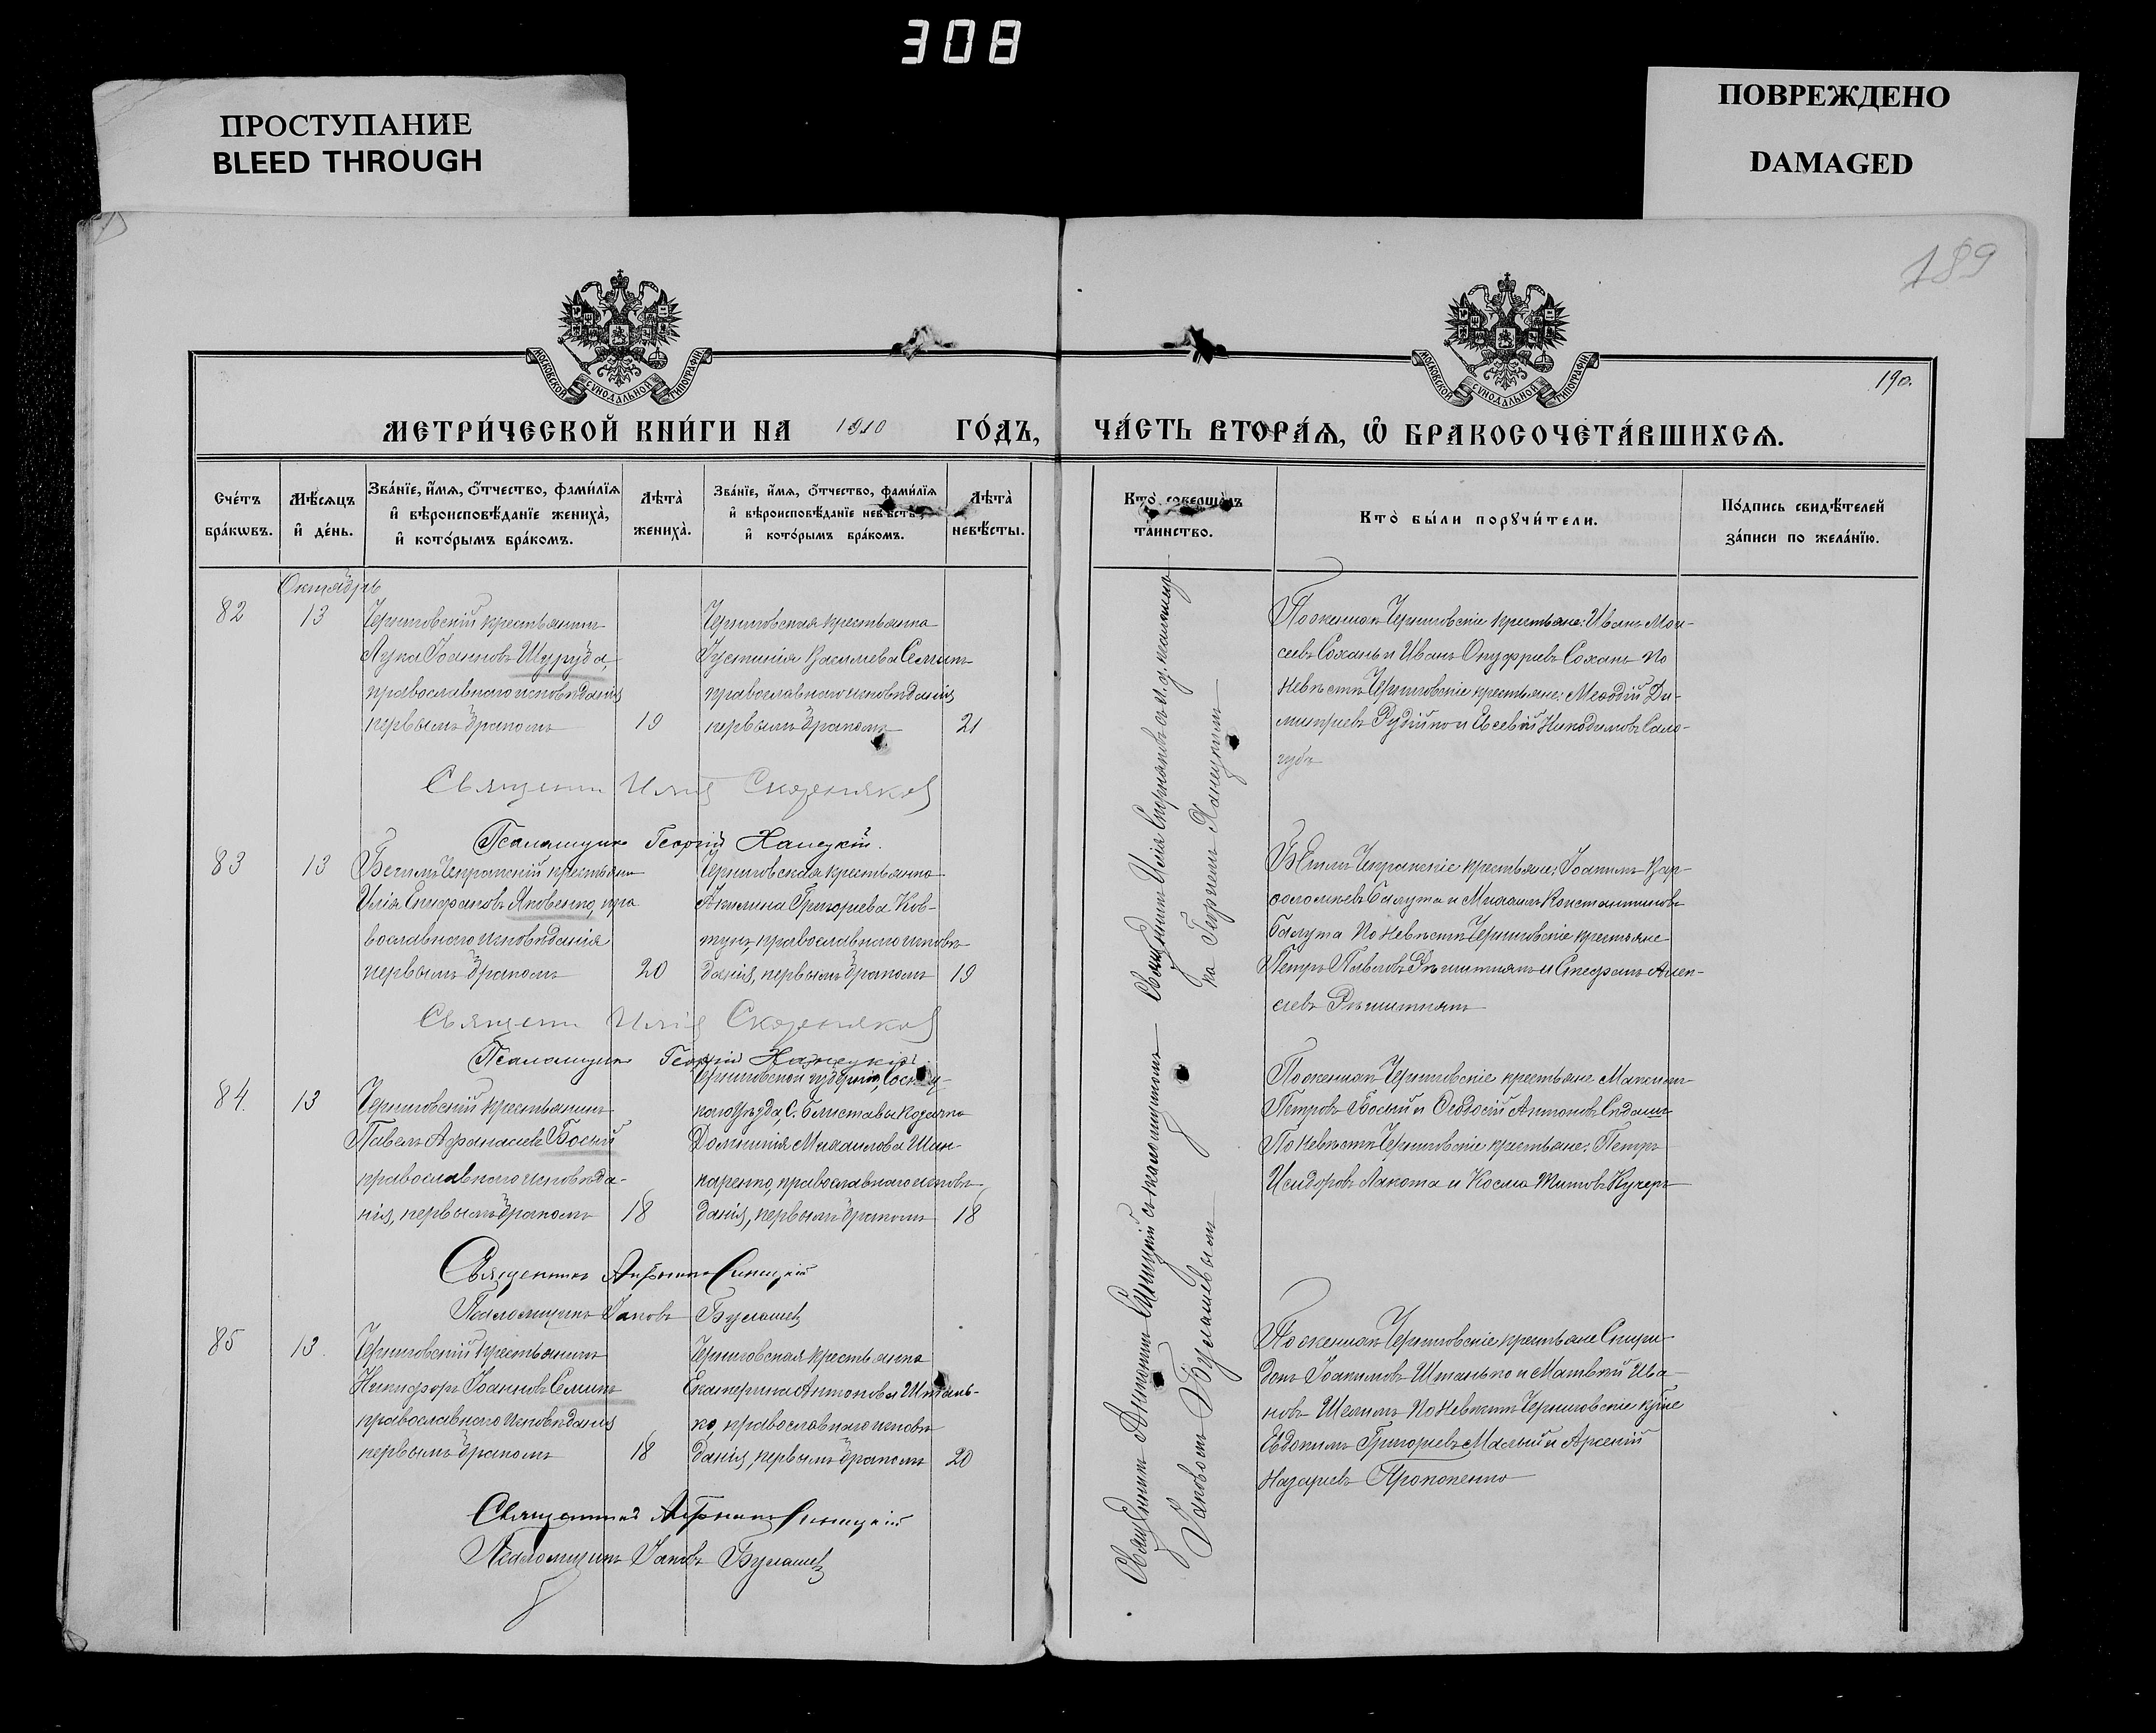 308
ПРОСТУПАНИЕ
BLEED THROUGH
ПОВРЕЖДЕНО
DAMAGED
189
190.
МОСКОВСКОЙ СѴНОДАЛЬНОЙ ТИПОГРАФІИ
МОСКОВСКОЙ СѴНОДАЛЬНОЙ ТИПОГРАФІИ
МЕТРИ́ЧЕСКОЙ КНИ́ГИ НА 1910 ГО́ДЪ,
ЧА́СТЬ ВТОРА́Ѧ, Ѽ БРАКОСОЧЕТА́ВШИХСѦ.
Счéтъ бра́кѡвъ.
Мѣ́сѧцъ и҆ де́нь.
Зва́нїе, и҆́мѧ, ѻ҆́тчество, фами́лїѧ и҆ вѣроисповѣ́данїе жениха̀, и҆ кото́рымъ бра́комъ.
Лѣ́та̀ жениха̀.
Зва́нїе, и҆́мѧ, ѻ҆́тчество, фами́лїѧ и҆ вѣроисповѣ́данїе невѣ́сты, и҆ кото́рымъ бра́комъ.
Лѣ́та̀ невѣ́сты.
Кто̀ соверша́лъ та́инство.
Кто̀ бы́ли порꙋчи́тели.
По́дпись свидѣ́телей за́писи по жела́нїю.
Октябрь
82
13
Черниговскій крестьянинъ
Лука Іоанновъ Шуруда,
православнаго исповѣданія
первымъ бракомъ
19
Черниговская крестьянка
Іустинія Василіева Семит
православнаго исповѣданія
первымъ бракомъ
21
По женихѣ Черниговскіе крестьяне: Иванъ Мои-
сеевъ Соханъ и Иванъ Онуфріевъ Соханъ По
невѣстѣ Черниговскіе крестьяне: Меѳодій Ди-
митріевъ Рудійко и Евсевій Никодимовъ Сало-
губъ
Священникъ Илія
Псаломщикъ Георгій Ханецкій.
83
13
крестьянинъ
Илія Епифановъ Яковенко, пра
вославнаго исповѣданія
первымъ бракомъ
20
Черниговская крестьянка
Акилина Григорьева Ков-
тунъ, православнаго исповѣ
данія, первымъ бракомъ
19
крестьяне: Іоакимъ Вар-
ѳоломеевъ Балута и Михаилъ Константиновъ
Балута По невѣстѣ Черниговскіе крестьяне
Петръ Павловъ Рѣшитнякъ и Стефанъ Алек-
сіевъ Рѣшитнякъ
Священникъ Илія
Псаломщикъ Георгій Ханецкій
84.
13
Черниговскій крестьянинъ
Павелъ Аѳанасіевъ Босый
православнаго исповѣда-
нія, первымъ бракомъ
18
Черниговской губерніи, Сосниц-
каго уѣзда, С. Блиставы козачка
Домникія Михаилова Шин-
каренко, православнаго исповѣ
данія, первымъ бракомъ
18
По женихѣ Черниговскіе крестьяне Максимъ
Петровъ Босый и Ѳеодосій Антоновъ
По невѣстѣ Черниговскіе крестьяне: Петръ
Исидоровъ Лакота и Косма Титовъ Кучеръ
Священникъ Антоній Синицкій
Псаломщикъ Іаковъ Булашевъ
85
13.
Черниговскій крестьянинъ
Никифоръ Іоанновъ Семит
православнаго исповѣданія
первымъ бракомъ
18
Черниговская крестьянка
Екатерина Антонова Штань-
ко, православнаго исповѣ
данія, первымъ бракомъ
20
По женихѣ Черниговскіе крестьяне Спири-
донъ Іоакимовъ Штанько и Матѳей Ива-
новъ По невѣстѣ Черниговскіе кр-не
Евдокимъ Григорьевъ Малый и Арсеній
Назаріевъ Прокопенко
Священникъ Антоній Синицкій
Псаломщикъ Іаковъ Булашевъ
Священникъ Антоній Синицкій съ псаломщикомъ
Іаковомъ Булашевымъ
Священникъ Илія
Георгіемъ Ханецкимъ